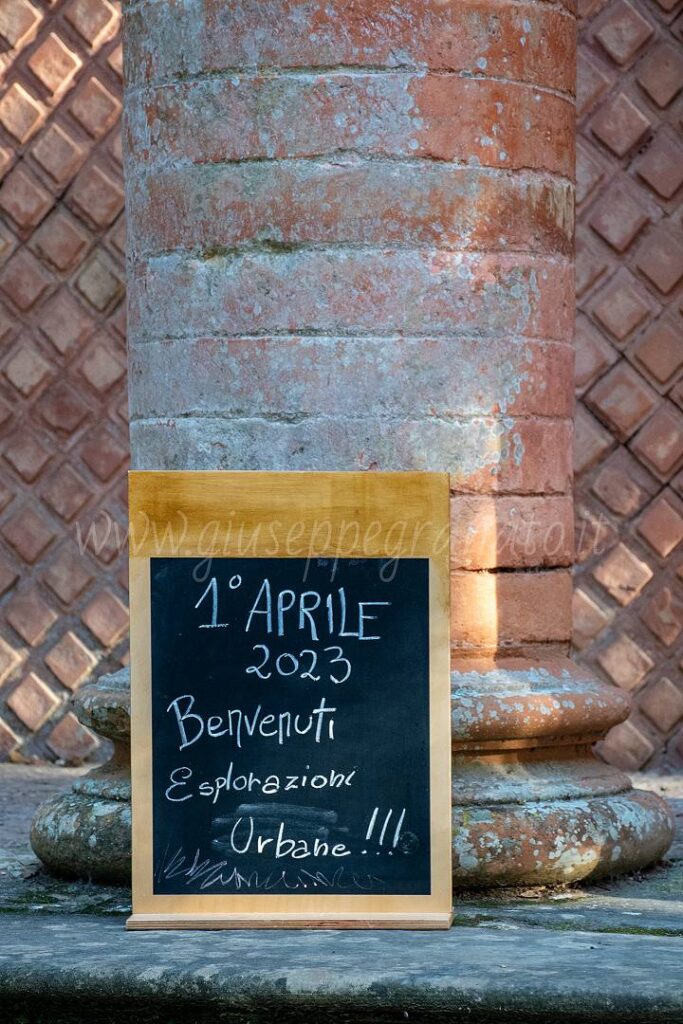 www.giuseppegranato.it
1° APRILE
2023
Benvenuti
Esplorazioni
Urbane!!!